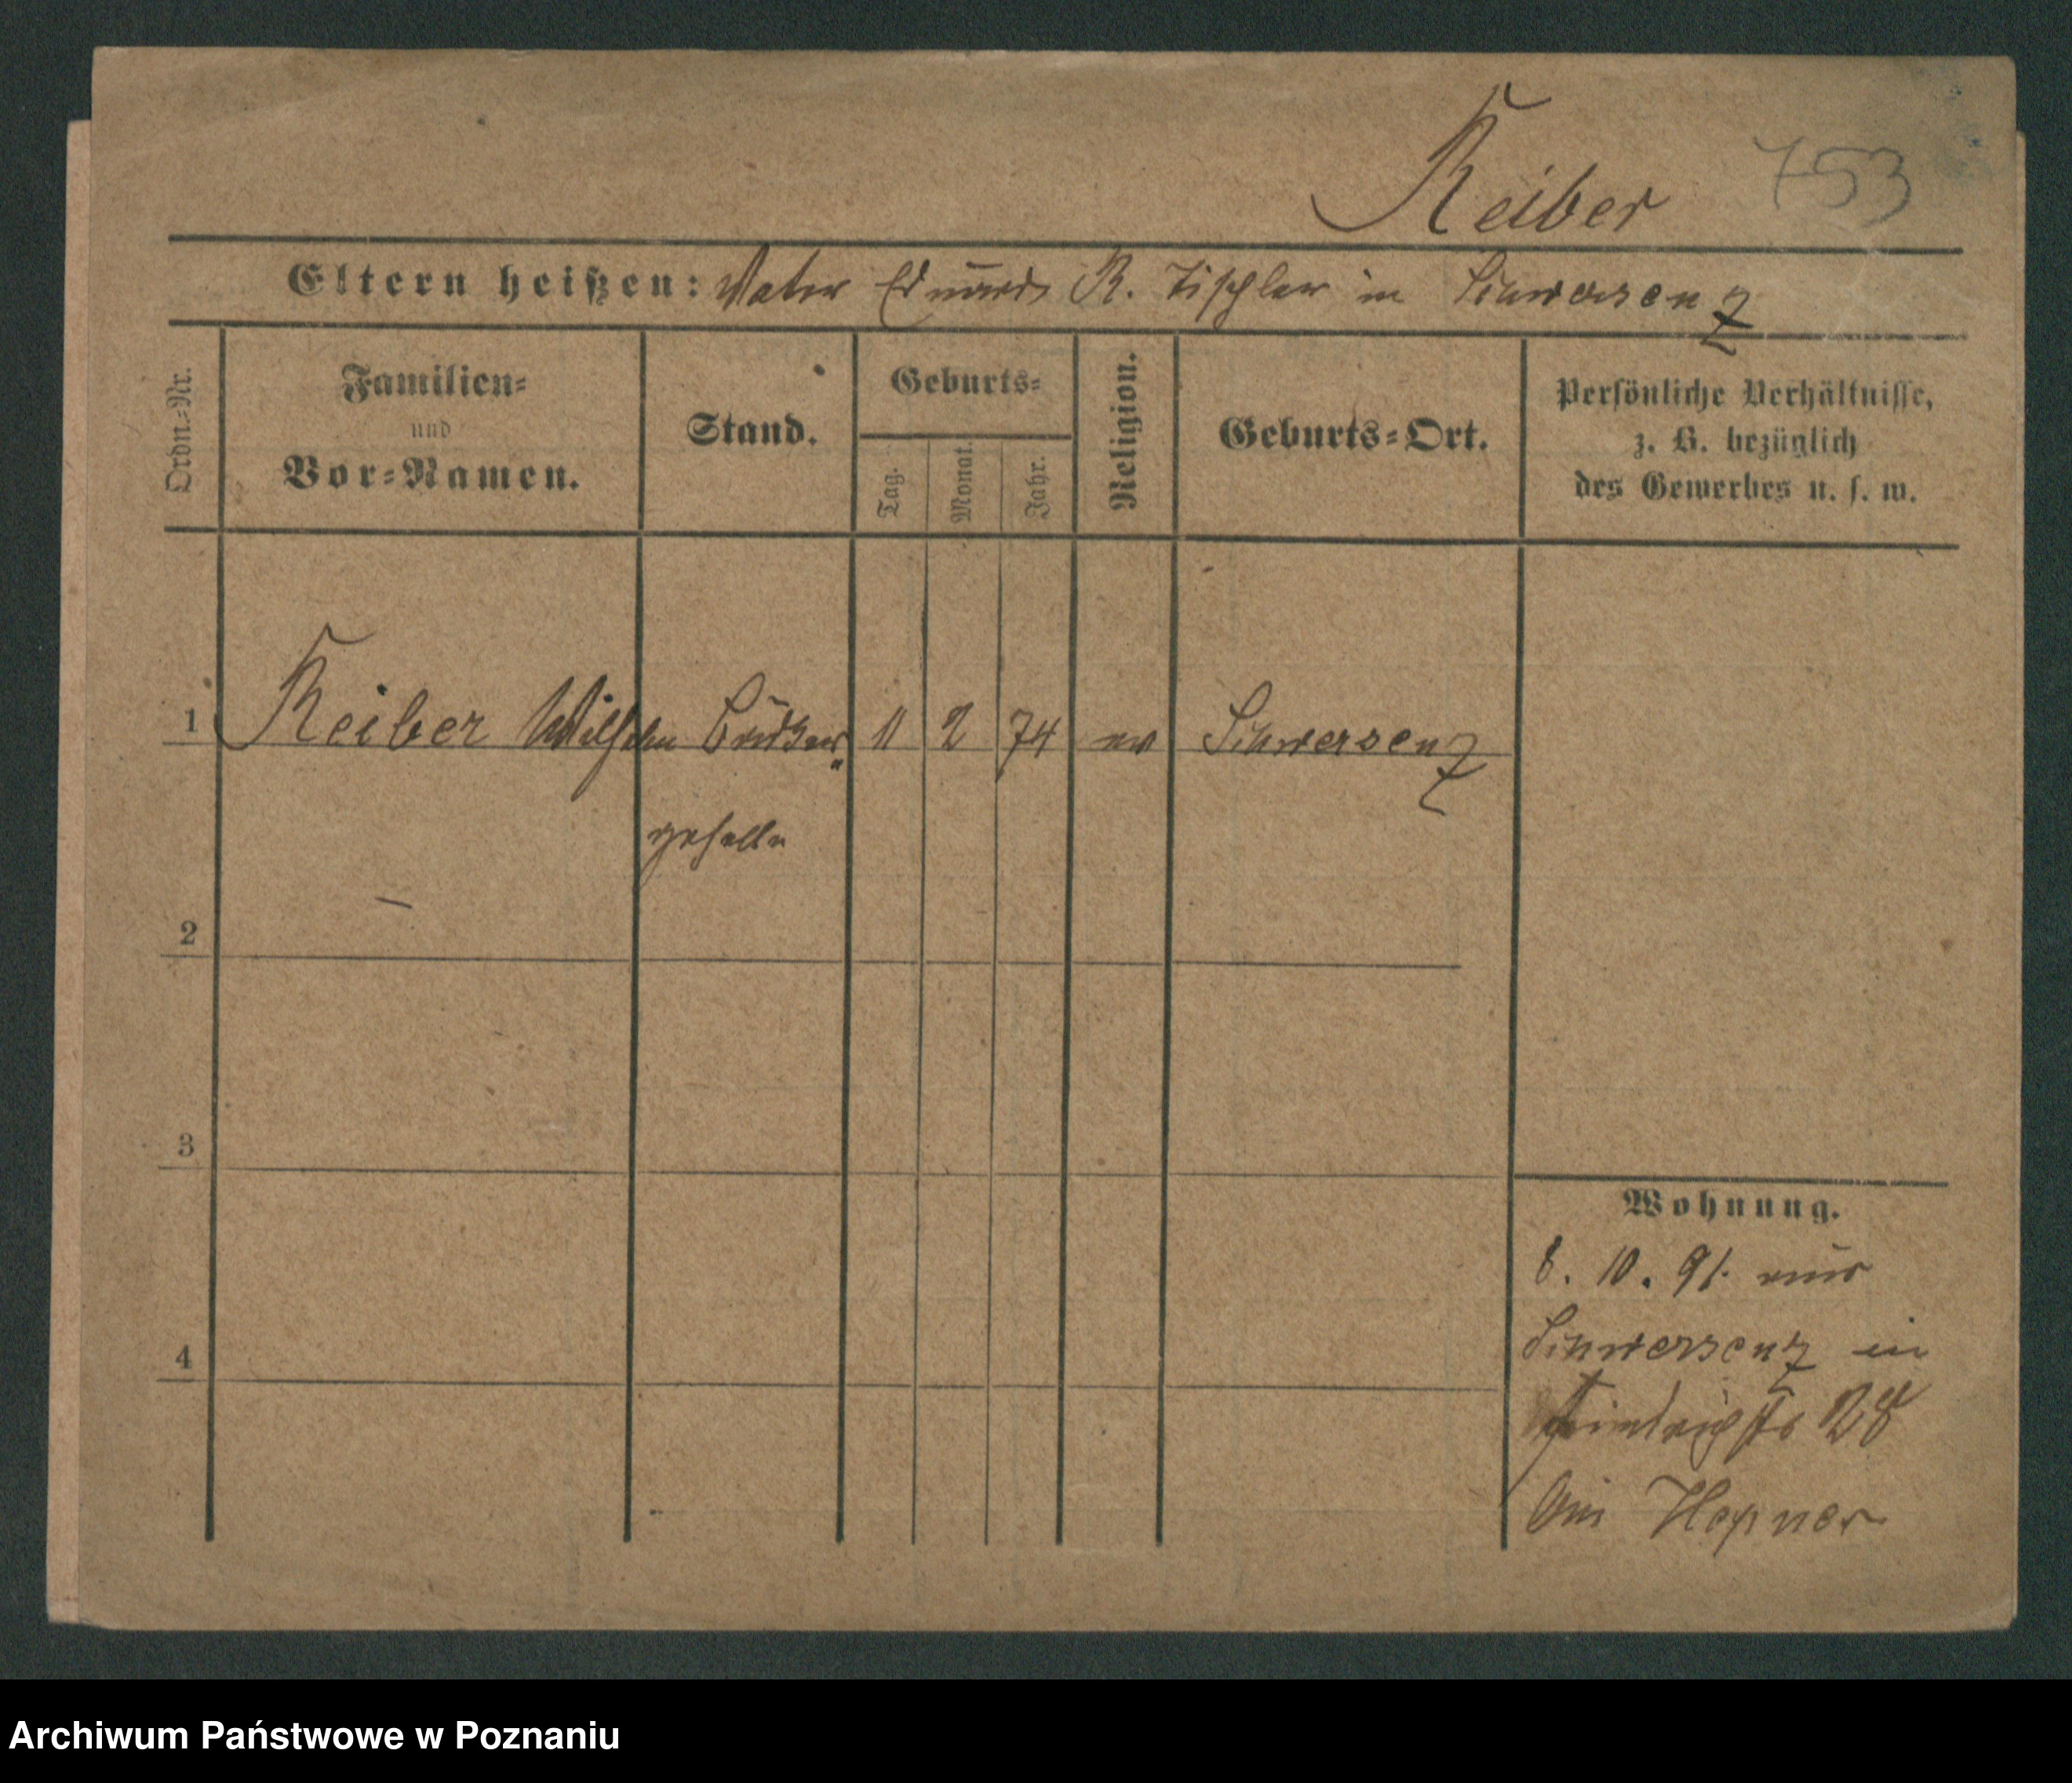 Reiber 753
Eltern heißen: Vater Eduard R. Tischler in Schwersenz
Ordn.=Nr.
Familien=
und
Vor=Namen.
Stand.
Geburts=
Tag.
Monat.
Jahr.
Religion.
Geburts=Ort.
Persönliche Verhältnisse,
z. B. bezüglich
des Gewerbes u. s. w.
1 Reiber Wilhelm 11 2 74 ev Schwersenz
geselle
2
3
4
Wohnung.
8. 10. 91. aus
Schwersenz in
28
bei Hepner
Archiwum Państwowe w Poznaniu